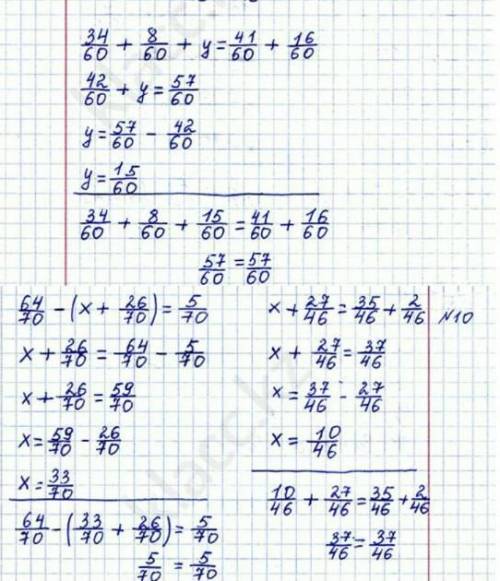 34/60 + 8/60 + y = 41/60 + 16/60
42/60 + y = 57/60
y = 57/60 - 42/60
y = 15/60
34/60 + 8/60 + 15/60 = 41/60 + 16/60
57/60 = 57/60
64/70 - (x + 26/70) = 5/70
x + 26/70 = 64/70 - 5/70
x + 26/70 = 59/70
x = 59/70 - 26/70
x = 33/70
64/70 - (33/70 + 26/70) = 5/70
5/70 = 5/70
x + 27/46 = 35/46 + 2/46 №10
x + 27/46 = 37/46
x = 37/46 - 27/46
x = 10/46
10/46 + 27/46 = 35/46 + 2/46
37/46 = 37/46